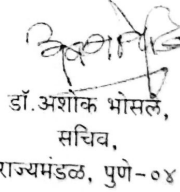 डॉ.अशोक भोसले,
सचिव,
राज्यमंडळ, पुणे-०४